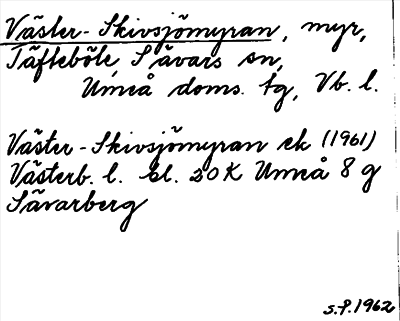 Väster-Skivsjömyran, myr,
Täfteböle, Sävars sn,
Umeå doms. tg, Vb. l.
Väster-Skivsjömyran ek (1961)
Västerb. l. bl. 20K Umeå 8 g
Sävarberg
S.P. 1962